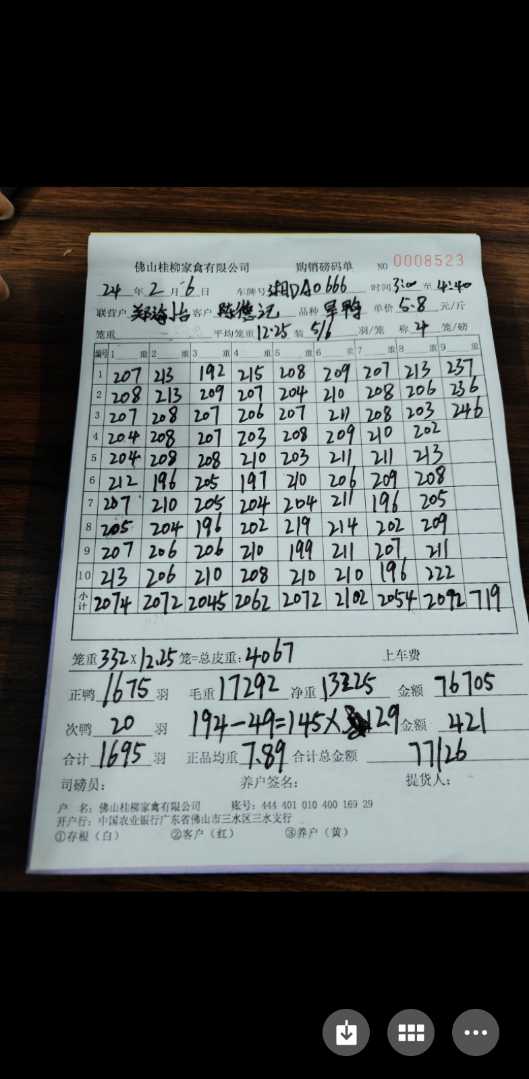 佛山桂柳家禽有限公司 购销磅码单 NO 0008523
24年2月6日 车牌号 湘DA0666 时间3:00至4:40
联营户 客户 品种 单价5.8元/斤
笼重 平均笼重12.25装5/6羽/笼 称4笼/磅
编号 1 重 2 重 3 重 4 重 5 重 6 重 7 重 8 重 9 重
1 207 213 192 215 208 209 207 213 237
2 208 213 209 207 204 210 208 206 236
3 207 208 207 206 207 211 208 203 246
4 204 208 207 203 208 209 210 202
5 204 208 208 210 203 211 211 213
6 212 196 205 197 210 206 209 208
7 207 210 205 204 204 211 196 205
8 205 204 196 202 219 214 202 209
9 207 206 206 210 199 211 207 211
10 213 206 210 208 210 210 196 222
小计 2074 2072 2045 2062 2072 2102 2054 2092 719
笼重332×12.25笼=总皮重:4067 上车费
正鸭1675羽 毛重17292净重13225 金额76705
次鸭20羽 194-49=145× 金额421
合计1695羽 正品均重7.89合计总金额77126
司磅员: 养户签名: 提货人:
户 名: 佛山桂柳家禽有限公司 账号: 444 401 010 400 169 29
开户行: 中国农业银行广东省佛山市三水区三水支行
①存根（白） ②客户（红） ③养户（黄）